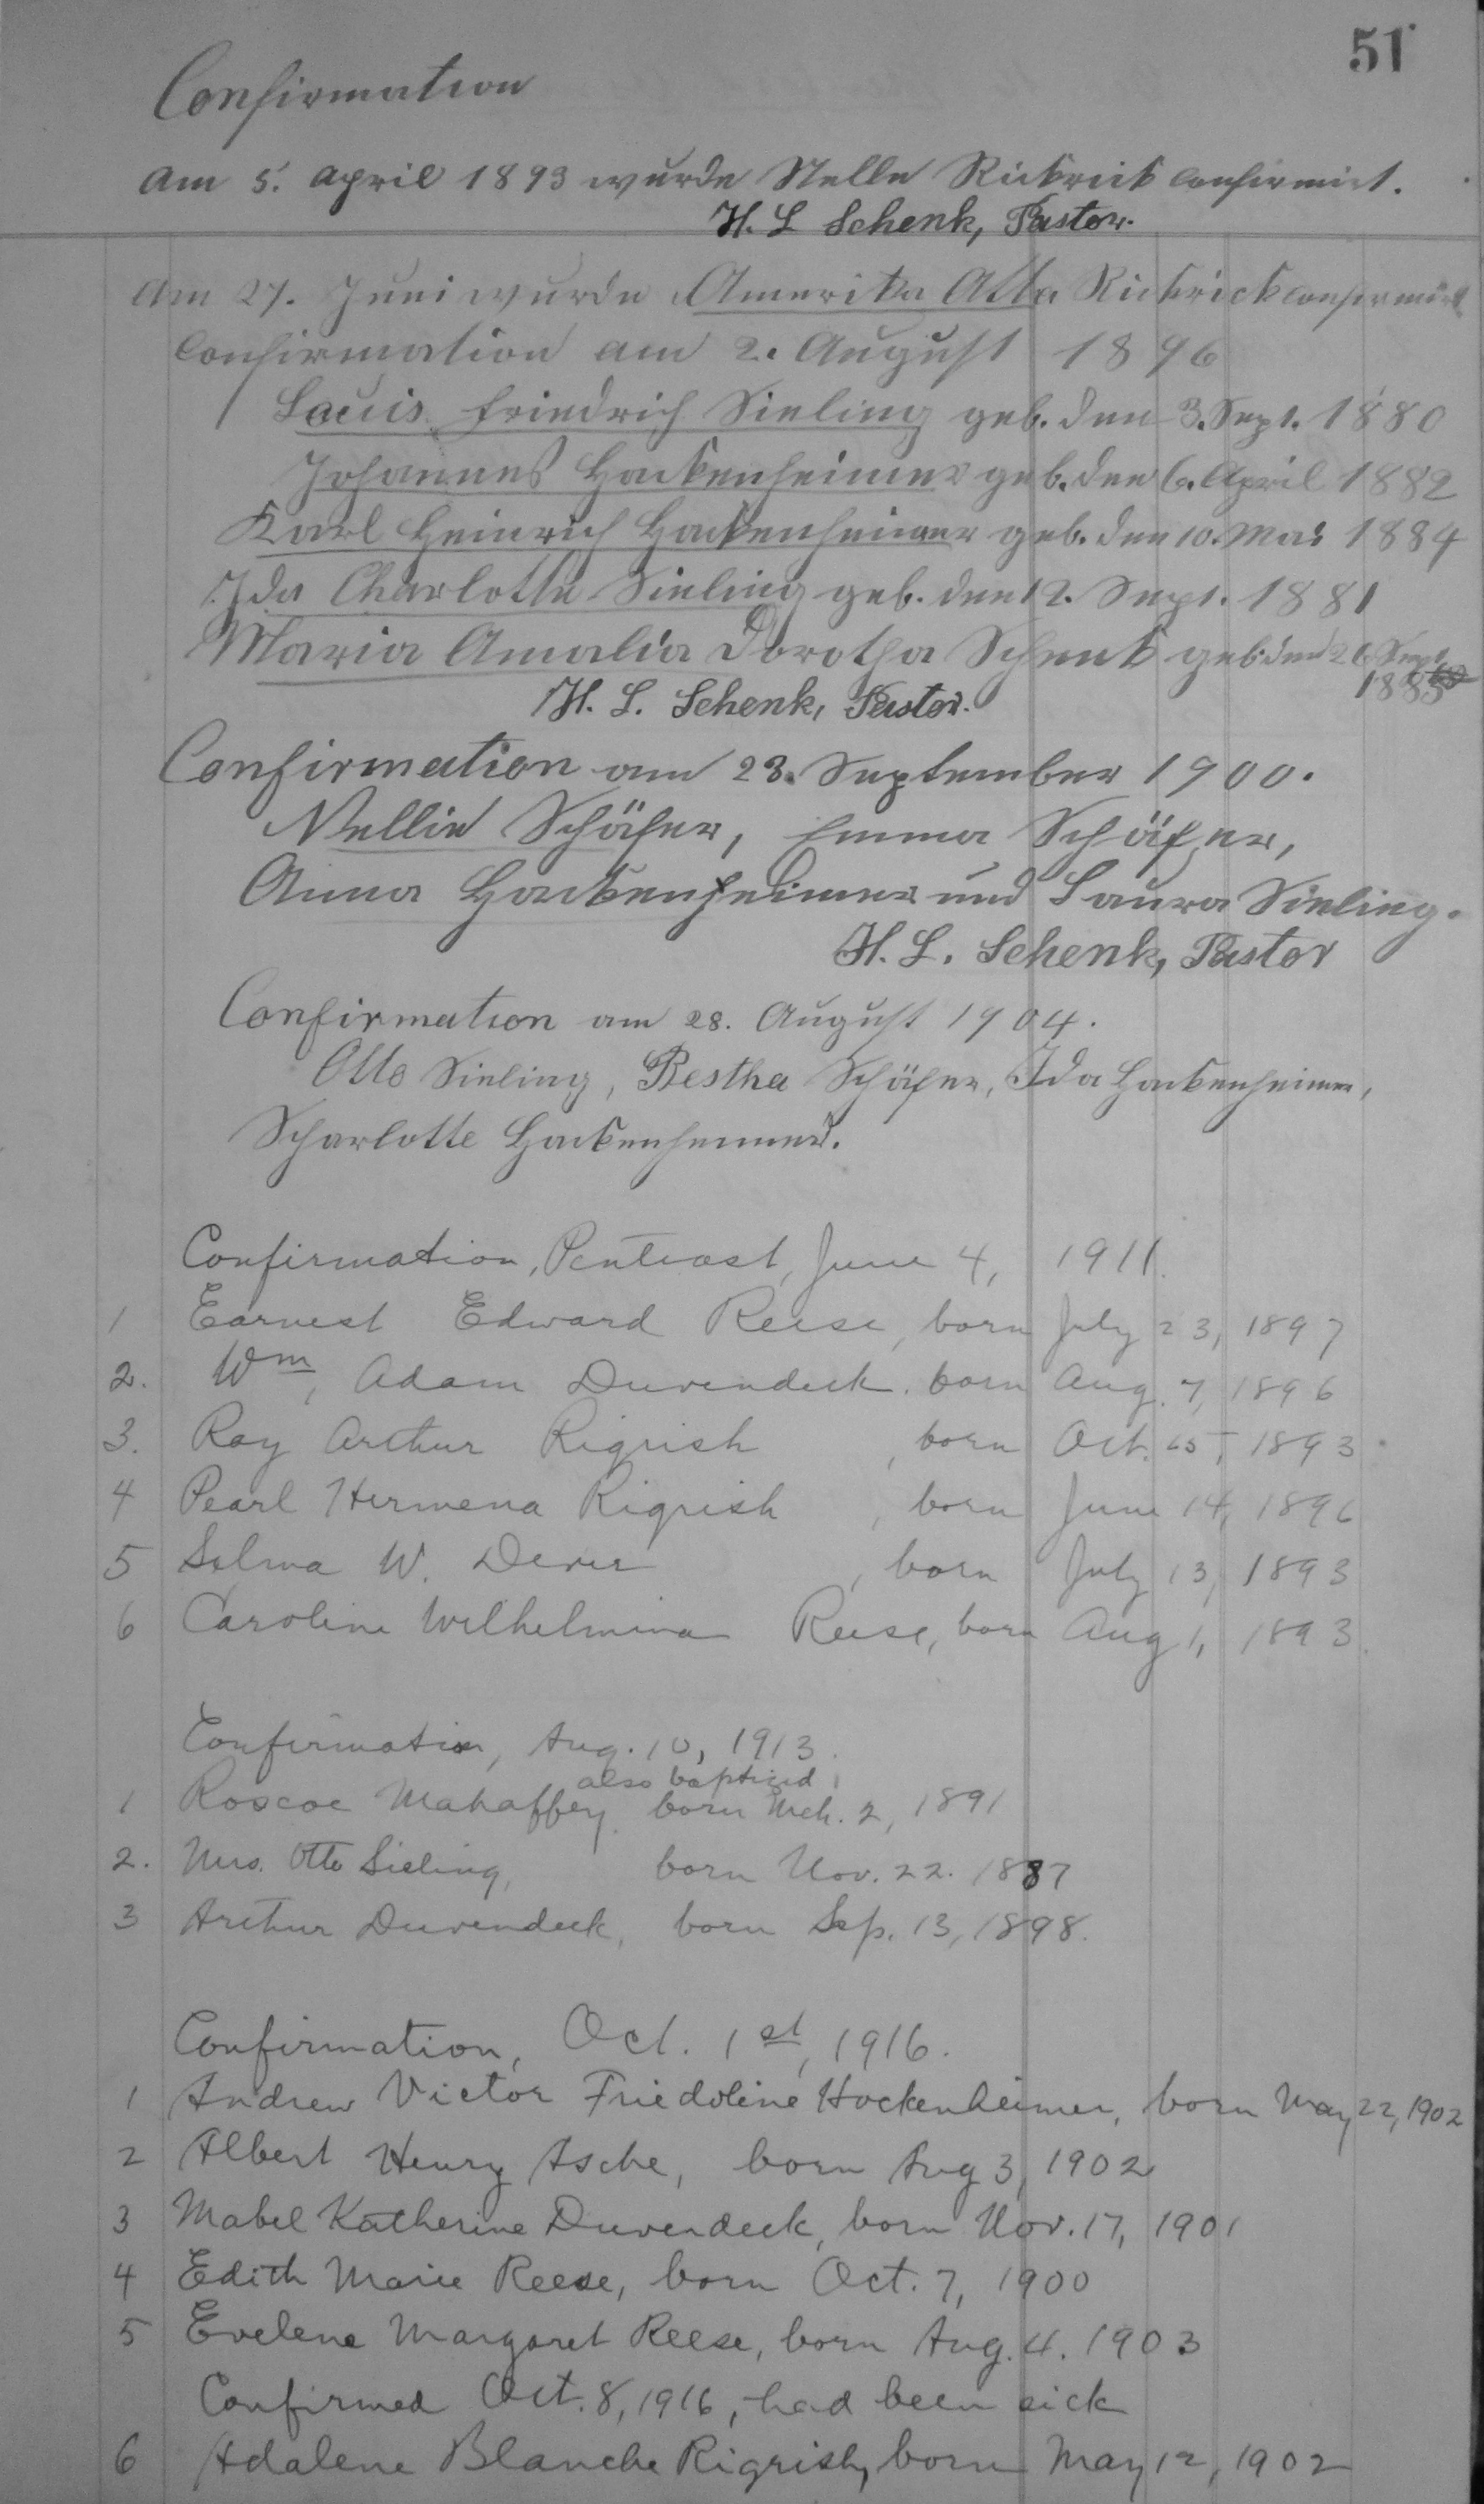 51
Confirmation
Am 5. April 1893 wurde Stella Rickrick confirmirt.
H. L. Schenk, Pastor.
Am 27. Juni wurde Amerika Atta Rickrick confirmirt
Confirmation am 2. August 1896
Louis Friedrich Sieling geb. den 3. Sept. 1880
Johannes Hackenheimer geb. den 6. April 1882
Karl Heinrich Hackenheimer geb. den 10. Mai 1884
Ida Charlotte Sieling geb. den 12. Sept. 1881
Maria Amalia Dorothea Schenk geb. den 26 Sept
1885
H. L. Schenk, Pastor.
Confirmation am 23. September 1900.
Nellie Schäfer, Emma Schäfer,
Anna Hackenheimer und Laura Sieling.
H. L. Schenk, Pastor
Confirmation am 28. August 1904.
Otto Sieling, Bertha Schäfer, Ida Hackenheimer,
Scharlotte Hackenheimer.
Confirmation, Pentecost, June 4, 1911.
1 Earnest Edward Reese, born July 23, 1897
2. Wm, Adam Duvendeck. born Aug. 7, 1896
3. Ray Arthur Rigrish, born Oct. 1893
4 Pearl Hermena Rigrish, born June 14, 1896
5 Selma W., born July 13, 1893
6 Caroline Wilhelmina Reese, born Aug 1, 1893.
Confirmation, Aug. 10, 1913.
also baptized
1 Roscoe Mahaffey. born Mch. 2, 1891
2. Mrs. Otto Sieling, born Nov. 22. 1887
3 Arthur Duvendeck, born Sep. 13, 1898.
Confirmation, Oct. 1st, 1916.
1 Andrew Victor Friedoline Hockenheimer, born May 22, 1902
2 Albert Henry Asche, born Aug 3, 1902
3 Mabel Katherine Duvendeck, born Nov. 17, 1901
4 Edith Marie Reese, born Oct. 7, 1900
5 Evelene Margaret Reese, born Aug. 4. 1903
Confirmed Oct. 8, 1916, had been sick
6 Adalene Blanche Rigrish, born May 12, 1902